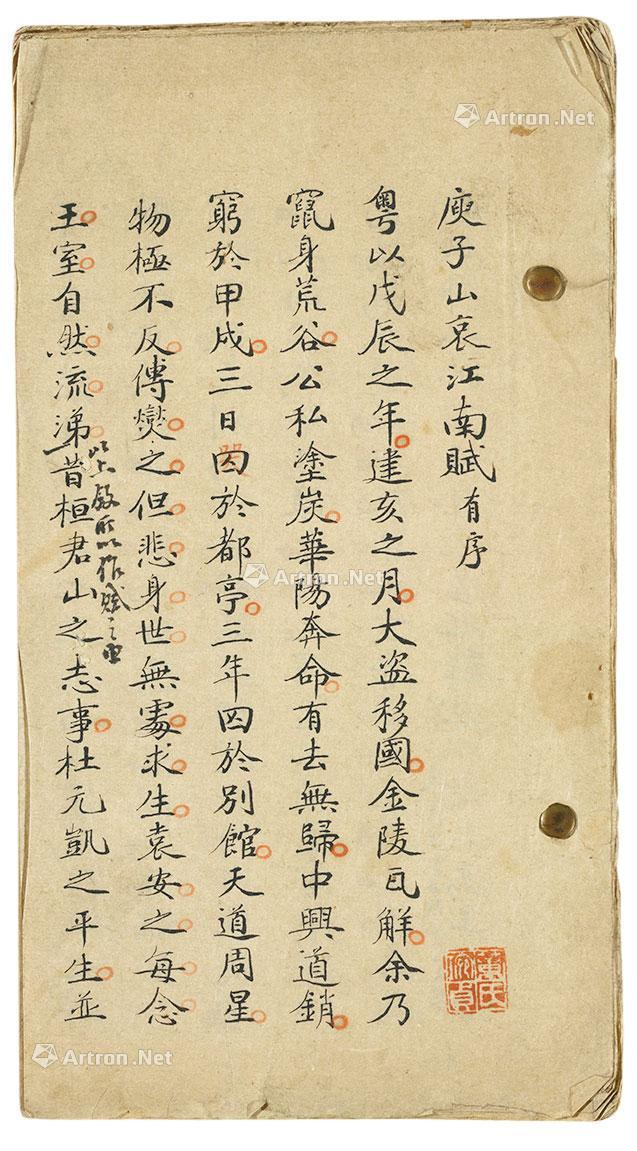 庾子山哀江南賦有序
粵以戊辰之年建亥之月大盜移國金陵瓦解余乃
竄身荒谷公私塗炭華陽奔命有去無歸中興道銷
窮於甲戌三日囚於都亭三年囚於別館天道周星
物極不反傅燮之但悲身世無處求生袁安之每念
王室自然流涕昔桓君山之志事杜元凱之平生並
以上敘所以作賦之由
Artron.Net
Artron.Net
Artron.Net
Artron.Net